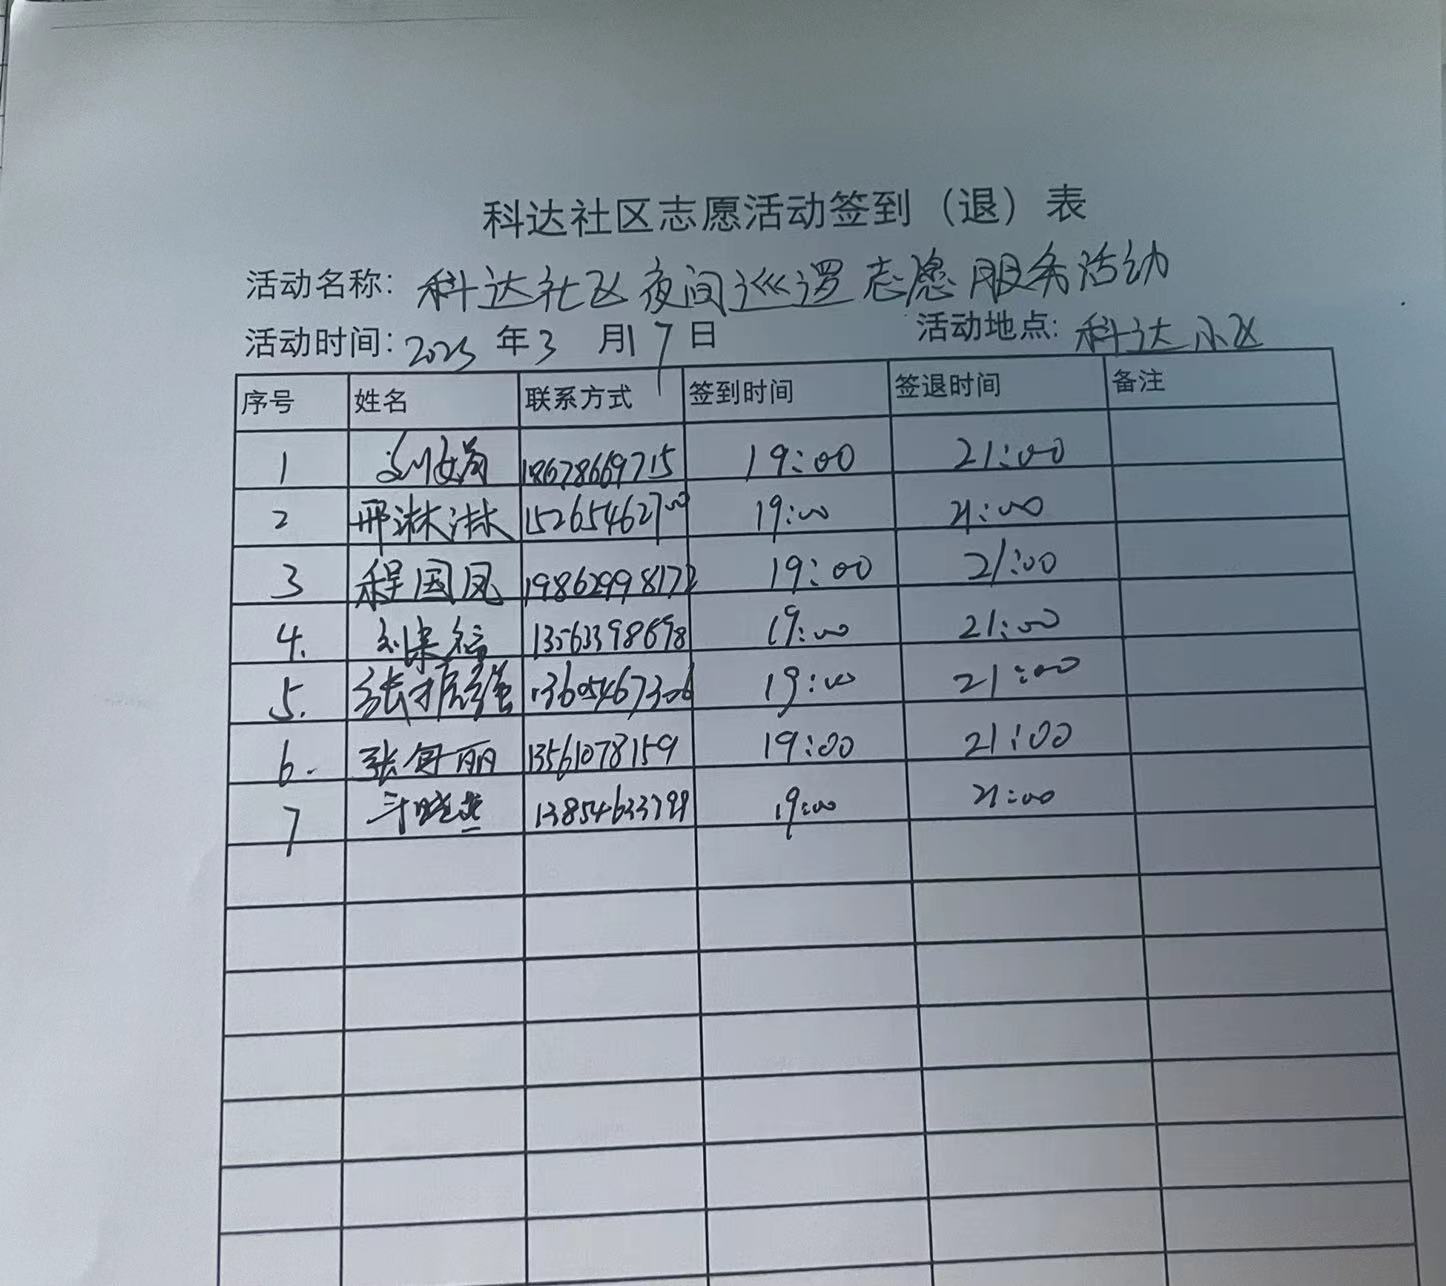 科达社区志愿活动签到（退）表
活动名称：科达社区夜间巡逻志愿服务活动
活动时间：2025年3月17日 活动地点：科达小区
序号 姓名 联系方式 签到时间 签退时间 备注
1 18678669715 19:00 21:00
2 邢淋淋 15265462700 19:00 21:00
3 程国凤 19862998172 19:00 21:00
4. 13563398698 19:00 21:00
5. 张振强 13605467306 19:00 21:00
6. 丽 13561078159 19:00 21:00
7 晓燕 19:00 21:00